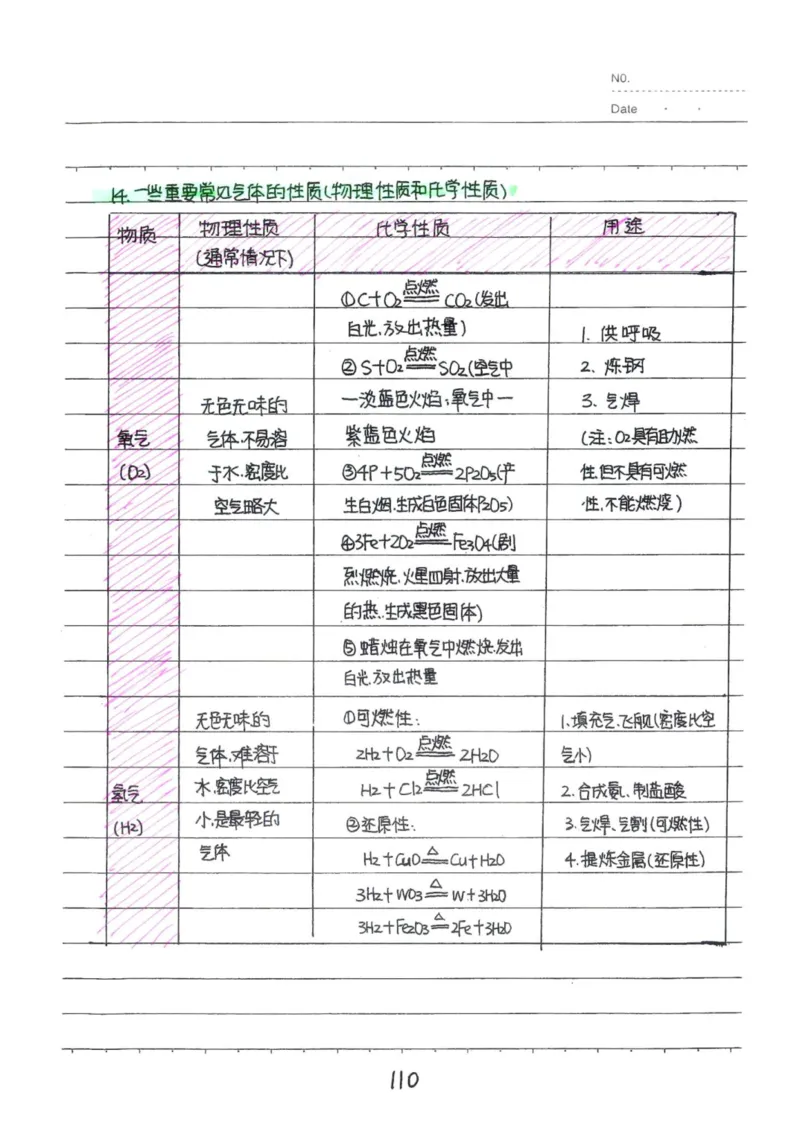 NO.
Date
14.一些重要常见气体的性质(物理性质和化学性质)
物质
物理性质
(通常情况下)
化学性质
用途
氧气
(O2)
无色无味的
气体.不易溶
于水.密度比
空气略大
①C+O2 点燃══ CO2(发出
白光.放出热量)
②S+O2 点燃══ SO2(空气中
一淡蓝色火焰;氧气中一
紫蓝色火焰
③4P+5O2 点燃══ 2P2O5(产
生白烟.生成白色固体P2O5)
④3Fe+2O2 点燃══ Fe3O4(剧
烈燃烧.火星四射.放出大量
的热.生成黑色固体)
⑤蜡烛在氧气中燃烧.发出
白光.放出热量
1. 供呼吸
2. 炼钢
3. 气焊
(注:O2具有助燃
性.但不具有可燃
性.不能燃烧)
氢气
(H2)
无色无味的
气体.难溶于
水.密度比空气
小.是最轻的
气体
①可燃性:
2H2+O2 点燃══ 2H2O
H2+Cl2 点燃══ 2HCl
②还原性:
H2+CuO △══ Cu+H2O
3H2+WO3 △══ W+3H2O
3H2+Fe2O3 △══ 2Fe+3H2O
1.填充气.飞舰(密度比空
气小)
2.合成氨、制盐酸
3.气焊、气割(可燃性)
4.提炼金属(还原性)
110